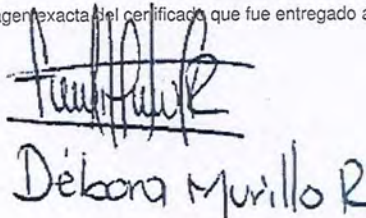 agen exacta del certificado que fue entregado a
Débora Murillo R